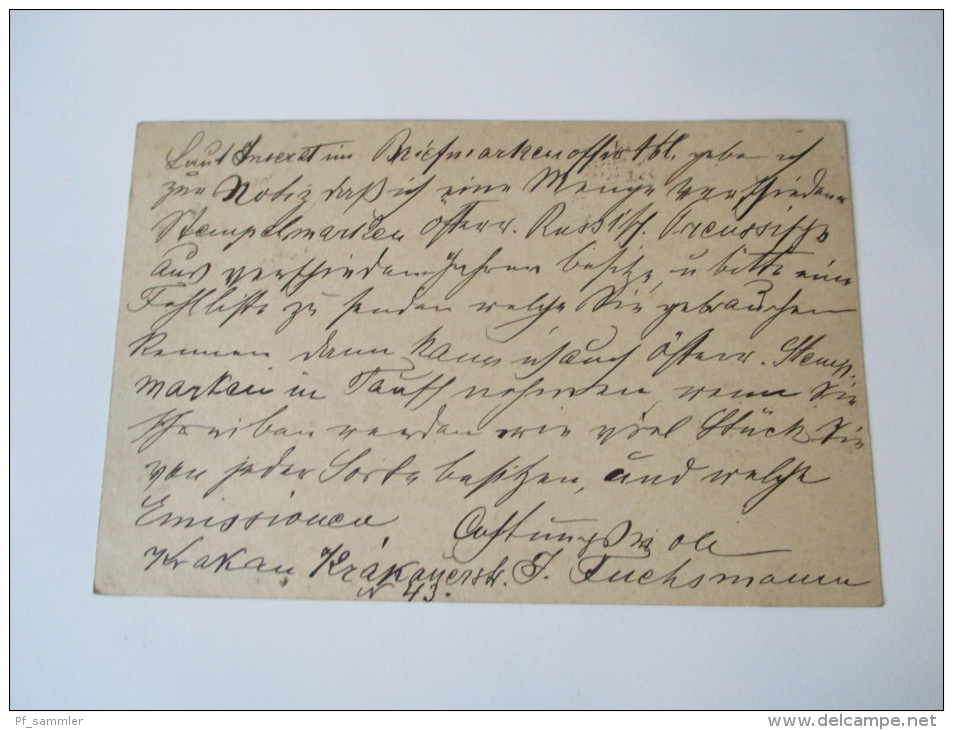 Laut Inserat im Briefmarkenoffertbl. gebe ich
zur Notiz daß ich eine Menge verschiedene
Stempelmarken österr. Russisch. Preussische
aus verschiedenen Jahren besitze, u bitte eine
Fehlliste zu senden welche Sie gebrauchen
kennen dann kann ich auch österr. Stemp.
marken in Tausch nehmen, wenn Sie
schreiben werden wie viel Stück Sie
von jeder Sorte besitzen, und welche
Emissionen
Achtungsvoll
Krakau Krakauerstr. J. Fuchsmann
N 43.
Pf_sammler
http://www.delcampe.net